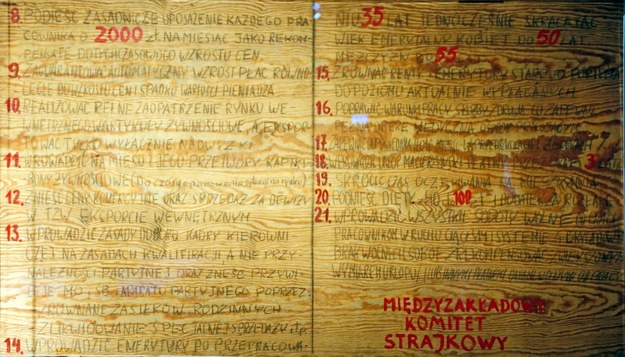 8. PODNIEŚĆ ZASADNICZE UPOSAŻENIE KAŻDEGO PRA
COWNIKA O 2000 ZŁ NA MIESIĄC JAKO REKOM
PENSATĘ DOTYCHCZASOWEGO WZROSTU CEN.
9. ZAGWARANTOWAĆ AUTOMATYCZNY WZROST PŁAC RÓWNO
LEGLE DO WZROSTU CEN I SPADKU WARTOŚCI PIENIĄDZA
10. REALIZOWAĆ PEŁNE ZAOPATRZENIE RYNKU WE
WNĘTRZNEGO W ARTYKUŁY ŻYWNOŚCIOWE, A EKSPOR
TOWAĆ TYLKO WYŁĄCZNIE NADWYŻKI
11. WPROWADZIĆ NA MIĘSO I JEGO PRZETWORY KARTKI
BONY ŻYWNOŚCIOWE (do czasu opanowania sytuacji na rynku)
12. ZNIEŚĆ CENY KOMERCYJNE ORAZ SPRZEDAŻ ZA DEWIZY
W TZW. EKSPORCIE WEWNĘTRZNYM
13. WPROWADZIĆ ZASADY DOBORU KADRY KIEROWNI
CZEJ NA ZASADACH KWALIFIKACJI A NIE PRZY-
NALEŻNOŚCI PARTYJNEJ ORAZ ZNIEŚĆ PRZYWI
LEJE MO, SB I APARATU PARTYJNEGO POPRZEZ
ZRÓWNANIE ZASIŁKÓW RODZINNYCH
ZLIKWIDOWANIE SPECJALNEJ SPRZEDAŻY itp.
14. WPROWADZIĆ EMERYTURY PO PRZEPRACOWA-
NIU 35 LAT JEDNOCZEŚNIE SKRACAJĄC
WIEK EMERYTALNY KOBIET DO 50 LAT
MĘŻCZYZN DO 55
15. ZRÓWNAĆ RENTY I EMERYTURY STAREGO PORTFELA
DO POZIOMU AKTUALNIE WYPŁACANYCH
16. POPRAWIĆ WARUNKI PRACY SŁUŻBY ZDROWIA CO ZAPEWNI
PEŁNĄ OPIEKĘ MEDYCZNĄ
17.
18. 3
19. SKRÓCIĆ CZAS OCZEKIWANIA NA MIESZKANIA
20. PODNIEŚĆ DIETY 100 ZŁ I DODATEK ZA ROZŁĄKĘ
21. WPROWADZIĆ WSZYSTKIE SOBOTY WOLNE OD PRACY
PRACOWNIKOM W RUCHU CIĄGŁYM I SYSTEMIE
BRAK WOLNYCH SOBÓT ZREKOMPENSOWAĆ ZWIĘKSZONYM
WYMIAREM URLOPU
MIĘDZYZAKŁADOWY
KOMITET
STRAJKOWY